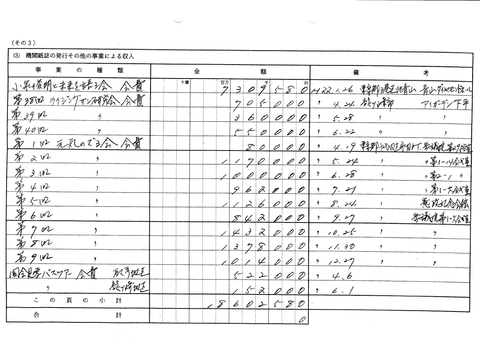 (その3)
(3) 機関紙誌の発行その他の事業による収入
事業の種類 金額 備考
十億 百万 千 円
会費 7309580 H22.1.26 東京都港区
第38回 ライジングサン研究会 会費 705000 〃 4.26
第39回 〃 360000 〃 5.28 〃
第40回 〃 550000 〃 6.22 〃
第1回 元気のでる会 会費 80000 〃 4.19
第2回 〃 1170000 〃 5.24 〃
第3回 〃 1000000 〃 6.28 〃
第4回 〃 962000 〃 7.21 〃
第5回 〃 1126000 〃 8.24
第6回 〃 842000 〃 9.27
第7回 〃 1432000 〃 10.25 〃
第8回 〃 1378000 〃 11.30 〃
第9回 〃 1014000 〃 12.27 〃
国会見学バスツアー 会費 522000 〃 4.6
〃 152000 〃 6.1
この頁の小計 18602580
合計 0